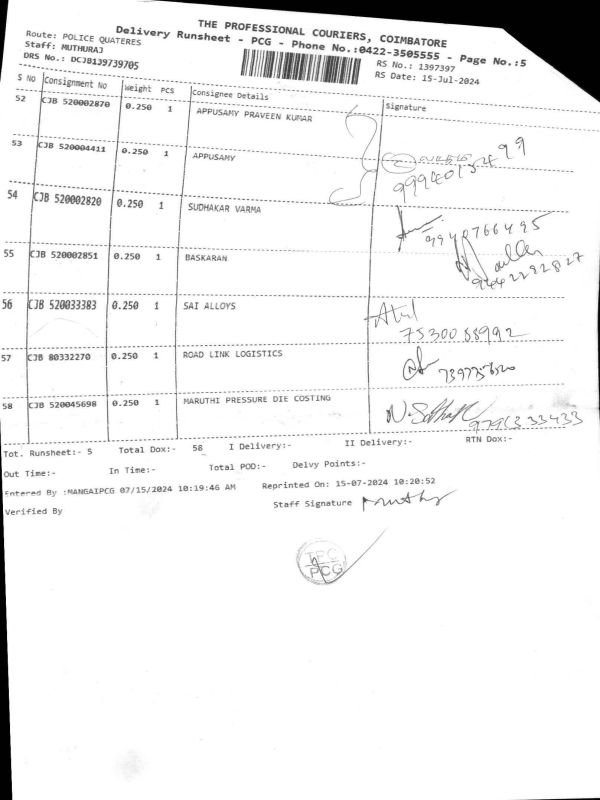 THE PROFESSIONAL COURIERS, COIMBATORE
Delivery Runsheet - PCG - Phone No.:0422-3505555 - Page No.:5
Route: POLICE QUATERES
Staff: MUTHURAJ
DRS No.: DCJB139739705
RS No.: 1397397
RS Date: 15-Jul-2024
S No Consignment No Weight PCS Consignee Details Signature
52 CJB 520002870 0.250 1 APPUSAMY PRAVEEN KUMAR
53 CJB 520004411 0.250 1 APPUSAMY
54 CJB 520002820 0.250 1 SUDHAKAR VARMA 9940766495
55 CJB 520002851 0.250 1 BASKARAN 9442292827
56 CJB 520033383 0.250 1 SAI ALLOYS
57 CJB 80332270 0.250 1 ROAD LINK LOGISTICS
58 CJB 520045698 0.250 1 MARUTHI PRESSURE DIE COSTING
Tot. Runsheet:- 5 Total Dox:- 58 I Delivery:- II Delivery:- RTN Dox:-
Out Time:- In Time:- Total POD:- Delvy Points:-
Entered By :MANGAIPCG 07/15/2024 10:19:46 AM Reprinted On: 15-07-2024 10:20:52
Verified By Staff Signature
PCG